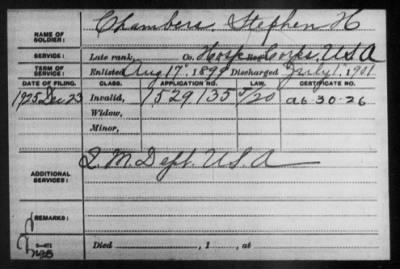 NAME OF SOLDIER: Chambers, Stephen H
SERVICE: Late rank, Co. Hosp Corps, U.S.A
TERM OF SERVICE: Enlisted Aug 17", 1899 Discharged July 1, 1901
DATE OF FILING. CLASS. APPLICATION NO. LAW. CERTIFICATE NO.
1925 Dec 23 Invalid, 1529135 5/20 a6-30-26
Widow,
Minor,
ADDITIONAL SERVICES: Q. M. Dept. U.S.A
REMARKS:
Died , 1 , at